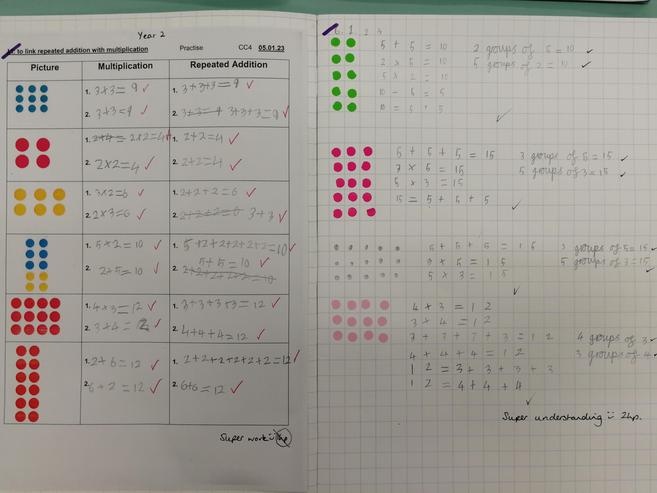 Year 2
to link repeated addition with multiplication Practise CC4 05.01.23
Picture Multiplication Repeated Addition
1. 3×3=9 1. 3+3+3=9
2. 3×3=9 2. 3+3=9 3+3+3=9
1. 2+4= 2×2=4 1. 2+2=4
2. 2×2=4 2. 2+2=4
1. 3×2=6 1. 2+2+2=6
2. 2×3=6 2. 2+2+2=6 3+3
1. 5×2=10 1. 5+2+2+2+2+2=10
2. 2×5=10 2. 5+5=10
1. 4×3=12 1. 3+3+3+3=12
2. 3×4=12 2. 4+4+4=12
1. 2×6=12 1. 2+2+2+2+2+2=12
2. 6×2=12 2. 6+6=12
Super work
5 + 5 = 10 2 groups of 5 = 10
2 × 5 = 10 5 groups of 2 = 10
5 × 2 = 10
10 - 5 = 5
10 = 5 + 5
5 + 5 + 5 = 15 3 groups of 5 = 15
3 × 5 = 15 5 groups of 3 = 15
5 × 3 = 15
15 = 5 + 5 + 5
5 + 5 + 5 = 15 3 groups of 5 = 15
3 × 5 = 15 5 groups of 3 = 15
5 × 3 = 15
4 × 3 = 12
3 × 4 = 12
3 + 3 + 3 + 3 = 12 4 groups of 3
4 + 4 + 4 = 12 3 groups of 4
12 = 3 + 3 + 3 + 3
12 = 4 + 4 + 4
Super understanding 2hp.